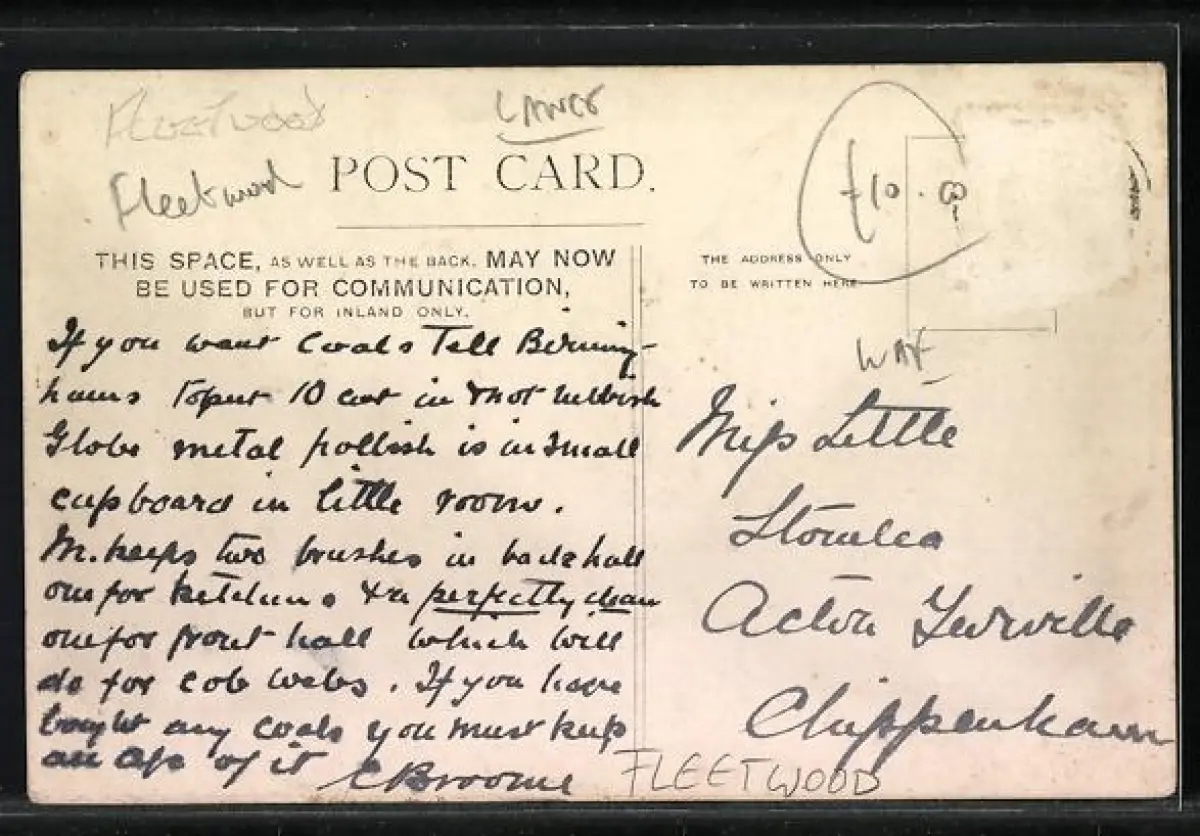 Fleetwood
LANCS
Fleetwood
POST CARD.
£10.
THIS SPACE, AS WELL AS THE BACK, MAY NOW
BE USED FOR COMMUNICATION,
BUT FOR INLAND ONLY.
THE ADDRESS ONLY
TO BE WRITTEN HERE
If you want Coals Tell Birming-
hams to put 10 cwt in & not rubbish
Globe metal pollish is in small
cupboard in little room.
M. keeps two brushes in back hall
one for kitchens & a perfectly clean
one for front hall which will
do for cob webs. If you have
bought any coals you must keep
an a/c of it CBroome
Miss Little
Acton Turville
Chippenham
FLEETWOOD